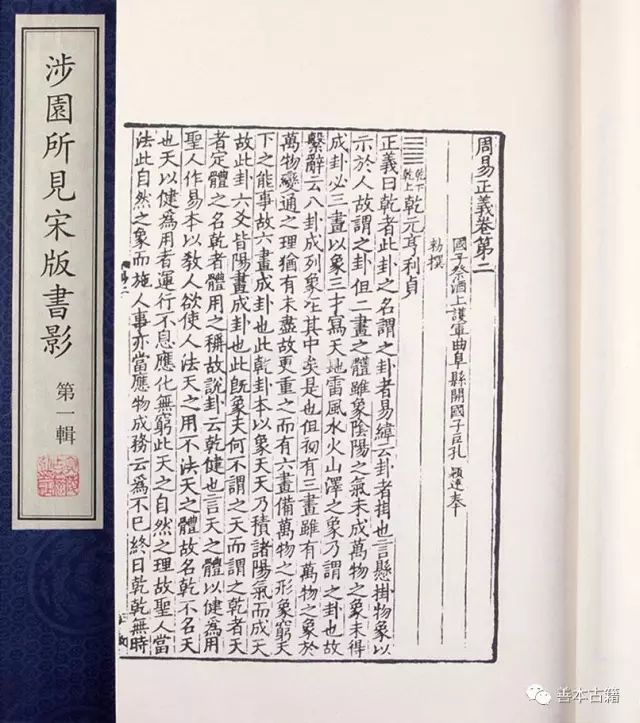 涉園所見宋版書影
第一輯
周易正義卷第二
國子祭酒上護軍曲阜縣開國子臣孔穎達奉
勑撰
乾下
乾上
乾元亨利貞
正義曰乾者此卦之名謂之卦者易緯云卦者掛也言懸掛物象以
示於人故謂之卦但二畫之體雖象陰陽之氣未成萬物之象未得
成卦必三畫以象三才寫天地雷風水火山澤之象乃謂之卦也故
繫辭云八卦成列象在其中矣是也但初有三畫雖有萬物之象於
萬物變通之理猶有未盡故更重之而有六畫備萬物之形象窮天
下之能事故六畫成卦也此乾卦本以象天天乃積諸陽氣而成天
故此卦六爻皆陽畫成卦也此既象天何不謂之天而謂之乾者天
者定體之名乾者體用之稱故說卦云乾健也言天之體以健爲用
聖人作易本以教人欲使人法天之用不法天之體故名乾不名天
也天以健爲用者運行不息應化無窮此天之自然之理故聖人當
法此自然之象而施人事亦當應物成務云爲不已終日乾乾無時
善本古籍